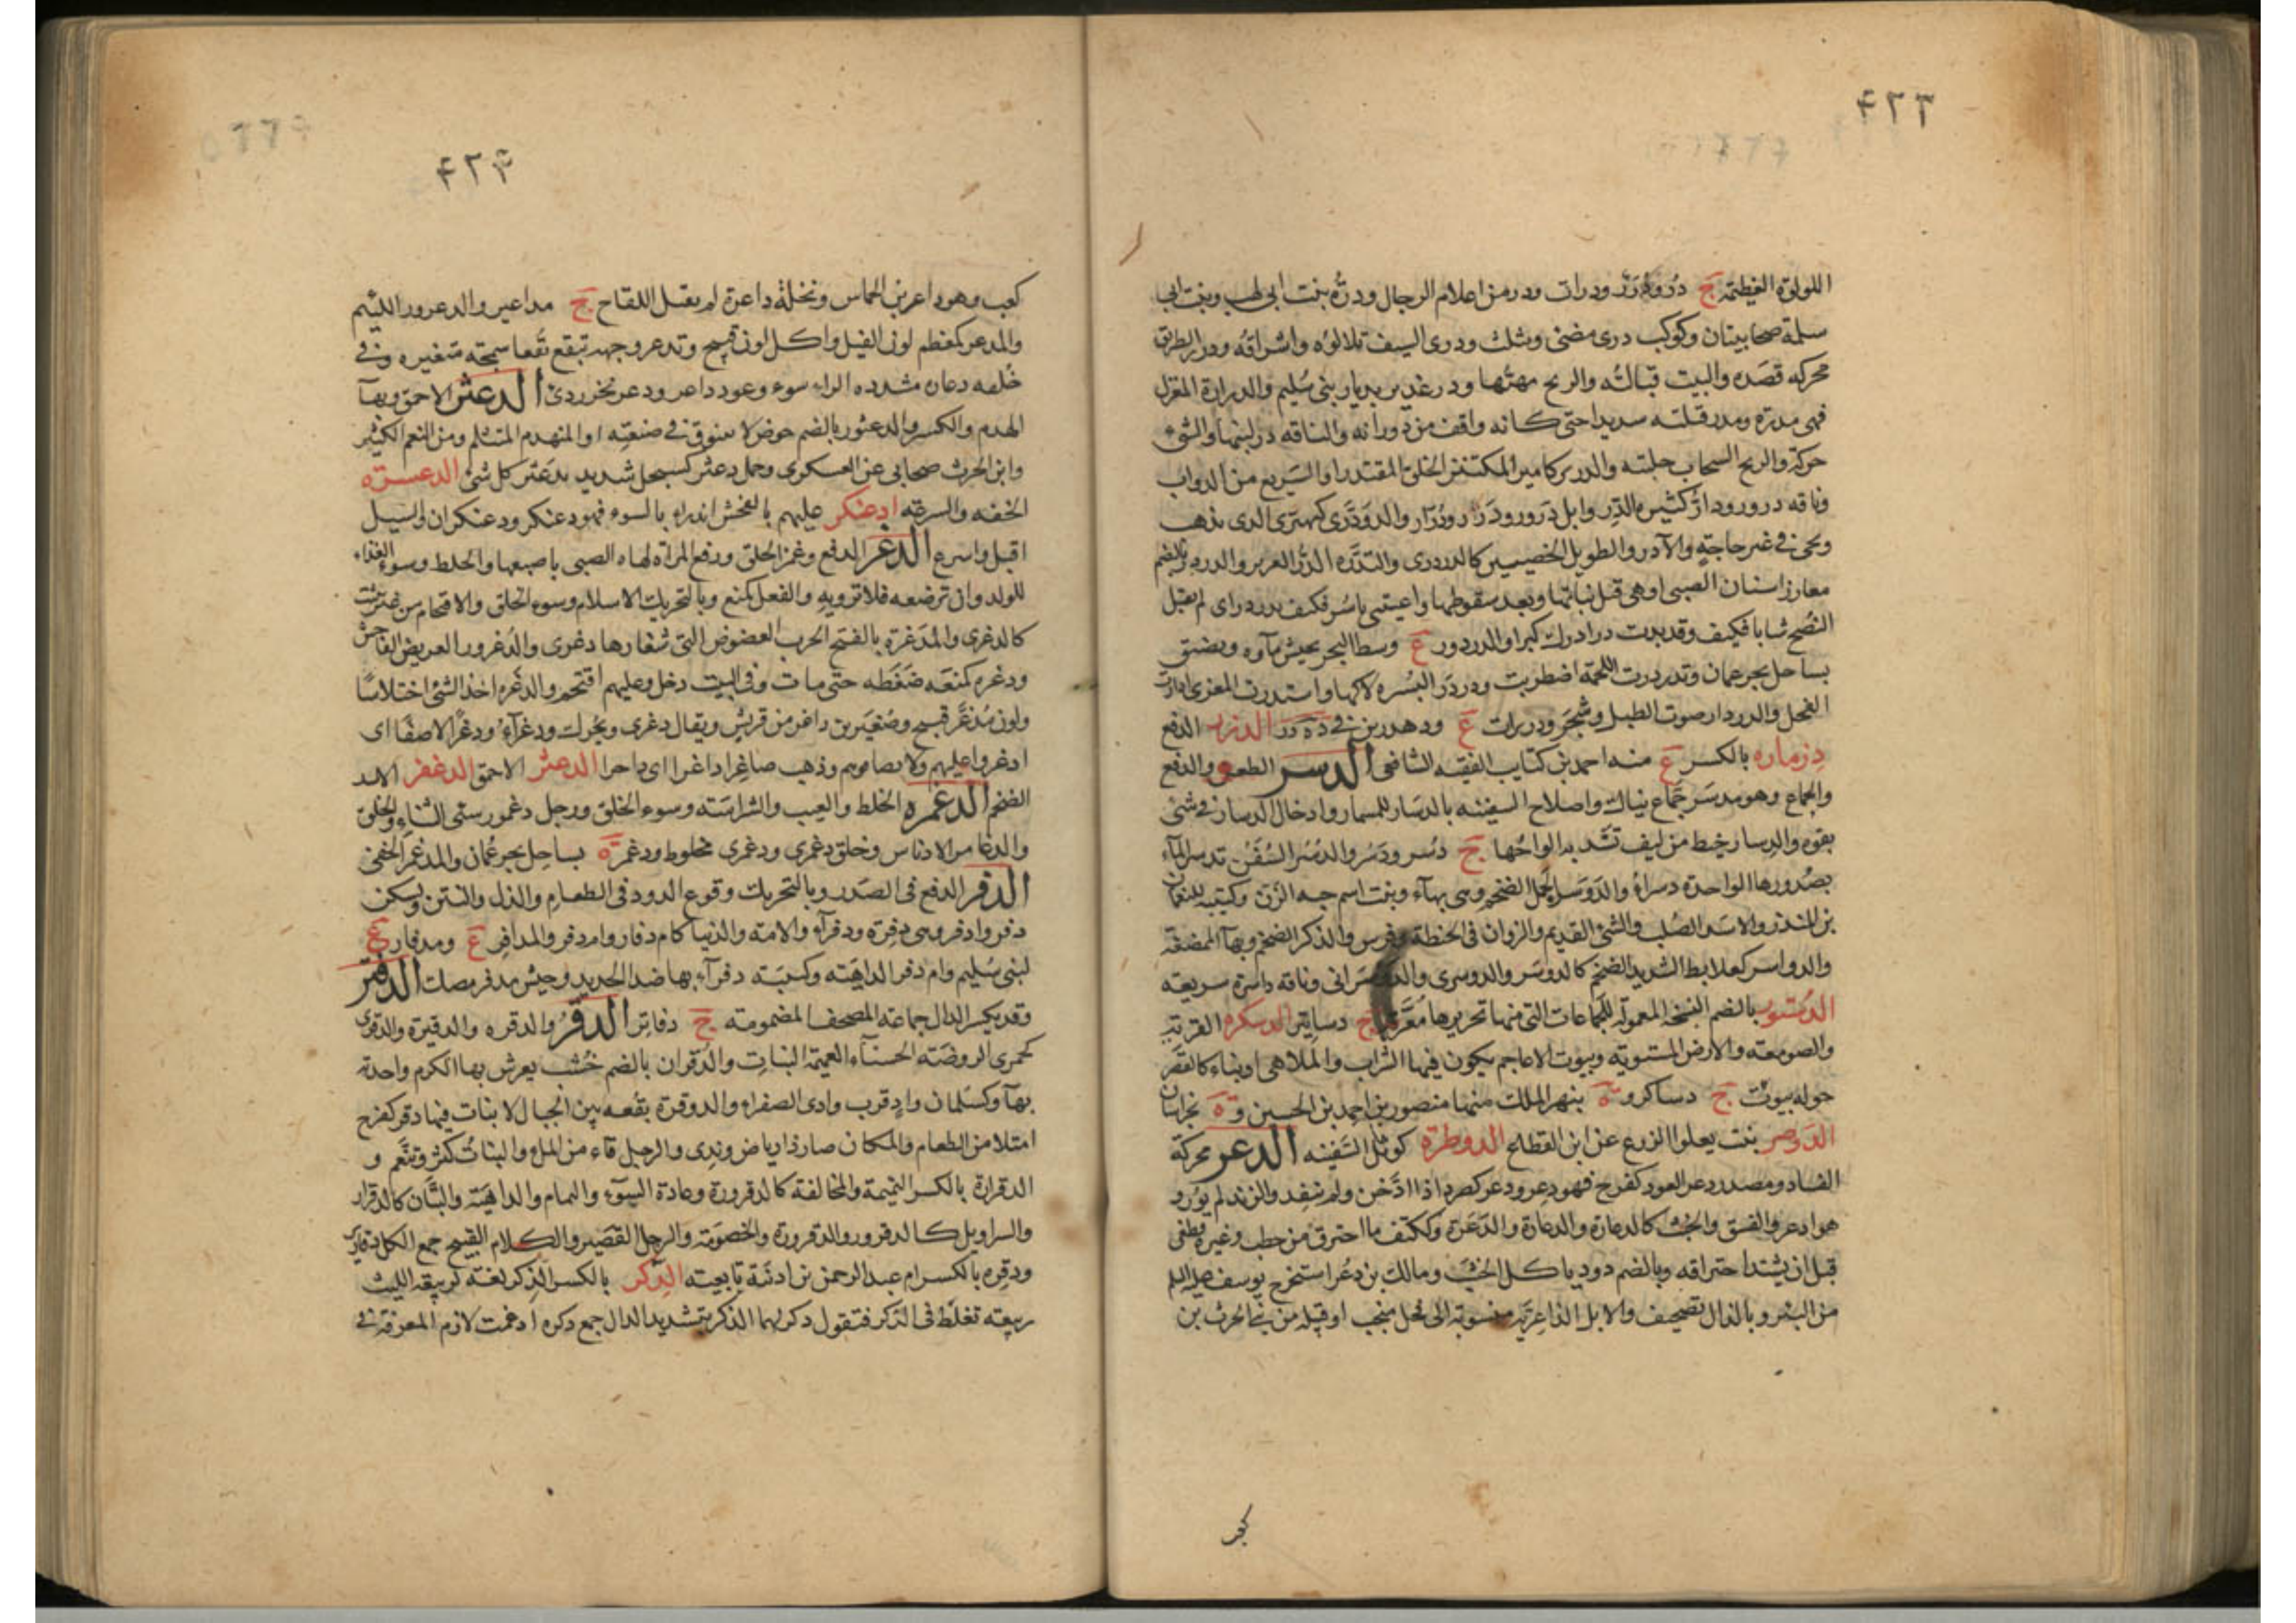 ٤٢٣
اللولوة العظيمة ج در ودرر ودرات ودر من اعلام الرجال ودره بنت ابى لهب وبنت ابى
سلمة صحابيتان وكوكب درى مضئ ودرى السيف تلالؤه واشراقه ودرر الطريق
محركه قصده والبيت قبالته والريح مهبها ودر غدير بديار بنى سليم والدرارة المغزل
حركة والريح السحاب جلبته والدرير كامير المكتنز الخلق المقتدر او السريع من الدواب
وناقه درور ودار كثيرة الدر وابل درور ودرر ودرار والدودرى كيهيرى الذى يذهب
ويجئ فى غير حاجته والآدر والطويل الخصيتين كالدردرى والتدره الدر الغزير والدردر بالضم
مغارز اسنان الصبى او هى قبل نباتها وبعد سقوطها واعييتنى باشر فكيف بدردر اى لم يقبل
النصح شابا فكيف وقد بدت درادرك كبرا والدردور ع وسط البحر يجيش ماؤه وبضيق
بساحل بحر عمان وتدردرت اللحمة اضطربت ودردر البسره لاكها واستدرت المعزى ارادت
الفحل والدردار صوت الطبل وشجر ودريرات ع ودهدرين فى ده در الدزر الدفع
دزماره بالكسر ع منه احمد بن كتايب الفقيه الشافعى الدسر الطعن والدفع
والجماع وهو مدسر جماع نياك واصلاح السفينه بالدسار للمسمار وادخال الدسار فى شئ
بقوه والدسار خيط من ليف تشد به الواحها ج دسر ودسر والدسر السفن تدسر الماء
بصدورها الواحدة دسراء والدوسر الجمل الضخم وهى بهاء ونبت اسم حبه الزن وكتيبة للنعمان
بن المنذر والاسد الصلب والشئ القديم والزوان فى الحنطة وفرس والذكر الضخم وبهآ المضغة
والدواسر كعلابط الشديد الضخم كالدوسر والدوسرى والدوسرانى وناقه داسرة سريعه
الدستور بالضم النسخه المعموله للجماعات التى منها تحريرها معربه ج دساتير الدسكره القريه
والصومعه والارض المستويه وبيوت الاعاجم يكون فيها الشراب والملاهى او بناء كالقصر
حوله بيوت ج دساكر و ة بنهر الملك منها منصور بن احمد بن الحسين و ة بخراسان
الدوصر نبت يعلوا الزرع عن ابن القطاع الدوطرة كوثل السفينه الدعر محركة
الفساد ومصدر دعر العود كفرح فهو دعر ودعر كصرد اذا ادخن ولم يتقد والزند لم يور و
هو ادعر والفسق والخبث كالدعارة والدعارة والدعرة وككتف ما احترق من حطب وغيره فطفى
قبل ان يشتد احتراقه وبالضم دود ياكل الخشب ومالك بن دعر استخرج يوسف عليه السلم
من البئر وبالذال تصحيف والابل الداعرية منسوبة الى فحل منجب او قبيله من بنى الحرث بن
كعب
٤٢٤
كعب وهو داعر بن الحماس ونخلة داعرة لم تقبل اللقاح ج مداعير والدعرور اللئيم
والمدعر كمعظم لون الفيل او كل لون قبيح وتدعر وجهه تبقع بقعا سمجة متغيره وفى
خلقه دعاره مشدده الراء سوء وعود داعر ودعر نخر ردئ الدعثر الاحمق وبهآ
الهدم والكسر والدعثور بالضم حوض لا ينوق فى صنعته او المنهدم المتثلم ومن النعم الكثير
وابن الحرث صحابى عن العسكرى وجمل دعثر كسبحل شديد يدعثر كل شئ الدعسره
الخفه والسرعة ادعنكر عليهم بالفحش اندراء بالسوء فهو دعنكر ودعنكران والسيل
اقبل واسرع الدغر الدفع وغمز الحلق ورفع المراة لهاه الصبى باصبعها والخلط وسوء الغذاء
للولد وان ترضعه فلا ترويه والفعل كمنع وبالتحريك الاستلام وسوء الخلق والاقتحام من غير تثبت
كالدغرى والمدغرة بالفتح الحرب العضوض التى شعارها دغرى والدغرور العريض الفاحش
ودغره كمنعه ضغطه حتى مات وفى البيت دخل وعليهم اقتحم والدغره اخذ الشئ اختلاسا
ولون مدغر قبيح وصغير بن داغر من قريش ويقال دغرى ويحرك ودغرآء ودغرا لا صفا اى
ادغروا عليهم ولا تصافوهم وذهب صاغرا داغرا اى داحرا الدغثر الاحمق الدغفر الاسد
الضخم الدغمره الخلط والعيب والشراسة وسوء الخلق ورجل دغمور سئ الثناء والخلق
وخلق دغمرى ودغمرى مخلوط ودغمر ة بساحل بحر عمان والمدغمر الخفى
الدفر الدفع فى الصدر وبالتحريك وقوع الدود فى الطعام والذل والنتن ويسكن
دفر وادفر وهى دفرة ودفرآء والامة والدنيا كام دفار وام دفر والمدافر ع ومدفار ع
لبنى سليم وام دفر الداهية وكتيبة دفرآء بها صدا الحديد وجيش مدفر مصك الدفتر
وقد يكسر الدال جماعة الصحف المضمومة ج دفاتر الدقر والدقره والدقيرة والدقرى
كجمزى الروضة الحسنآء العميمة النبات والدقران بالضم خشب يعرش بها الكرم واحدته
بهآ وكسلمان واد قرب وادى الصفراء والدوقرة بقعه بين الجبال لا نبات فيها دقر كفرح
امتلا من الطعام والمكان صار ذا رياض وندى والرجل قاء من الملء والنبات كثر وتنعم و
الدقرارة بالكسر النميمة والمخالفة كالدقرورة وعادة السوء والنمام والداهية والتبان كالدقرار
والسراويل كالدقرور والدقرورة والخصومة والرجل القصير والكلام القبيح جمع الكل دقارير
ودقره بالكسر ام عبد الرحمن بن اذينة تابعيه الدكر بالكسر الذكر لغة لربيعة الليث
ربيعة تغلط فى الذكر فتقول دكر انما الدكر بتشديد الدال جمع دكره ادغمت لازم المعرفة فى